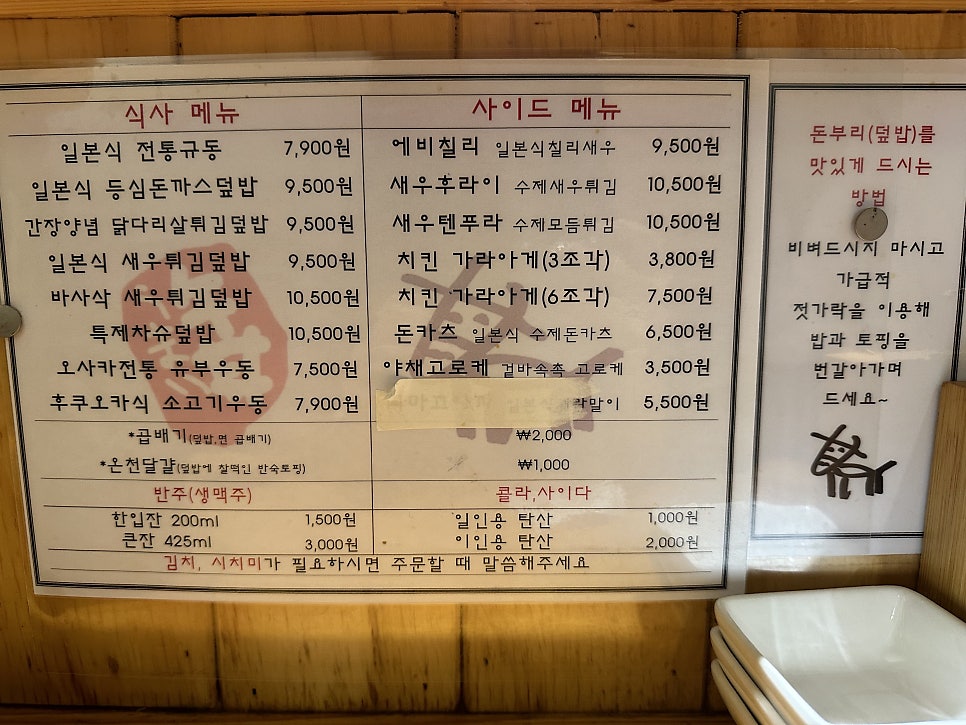 식사 메뉴
일본식 전통규동 7,900원
일본식 등심돈까스덮밥 9,500원
간장양념 닭다리살튀김덮밥 9,500원
일본식 새우튀김덮밥 9,500원
바사삭 새우튀김덮밥 10,500원
특제차슈덮밥 10,500원
오사카전통 유부우동 7,500원
후쿠오카식 소고기우동 7,900원
사이드 메뉴
에비칠리 일본식칠리새우 9,500원
새우후라이 수제새우튀김 10,500원
새우텐푸라 수제모듬튀김 10,500원
치킨 가라아게(3조각) 3,800원
치킨 가라아게(6조각) 7,500원
돈카츠 일본식 수제돈카츠 6,500원
야채고로케 겉바속촉 고로케 3,500원
5,500원
*곱배기(덮밥,면 곱배기) ₩2,000
*온천달걀(덮밥에 찰떡인 반숙토핑) ₩1,000
반주(생맥주)
한입잔 200ml 1,500원
큰잔 425ml 3,000원
콜라,사이다
일인용 탄산 1,000원
이인용 탄산 2,000원
김치, 시치미가 필요하시면 주문할 때 말씀해주세요
돈부리(덮밥)를
맛있게 드시는
방법
비벼드시지 마시고
가급적
젓가락을 이용해
밥과 토핑을
번갈아가며
드세요~